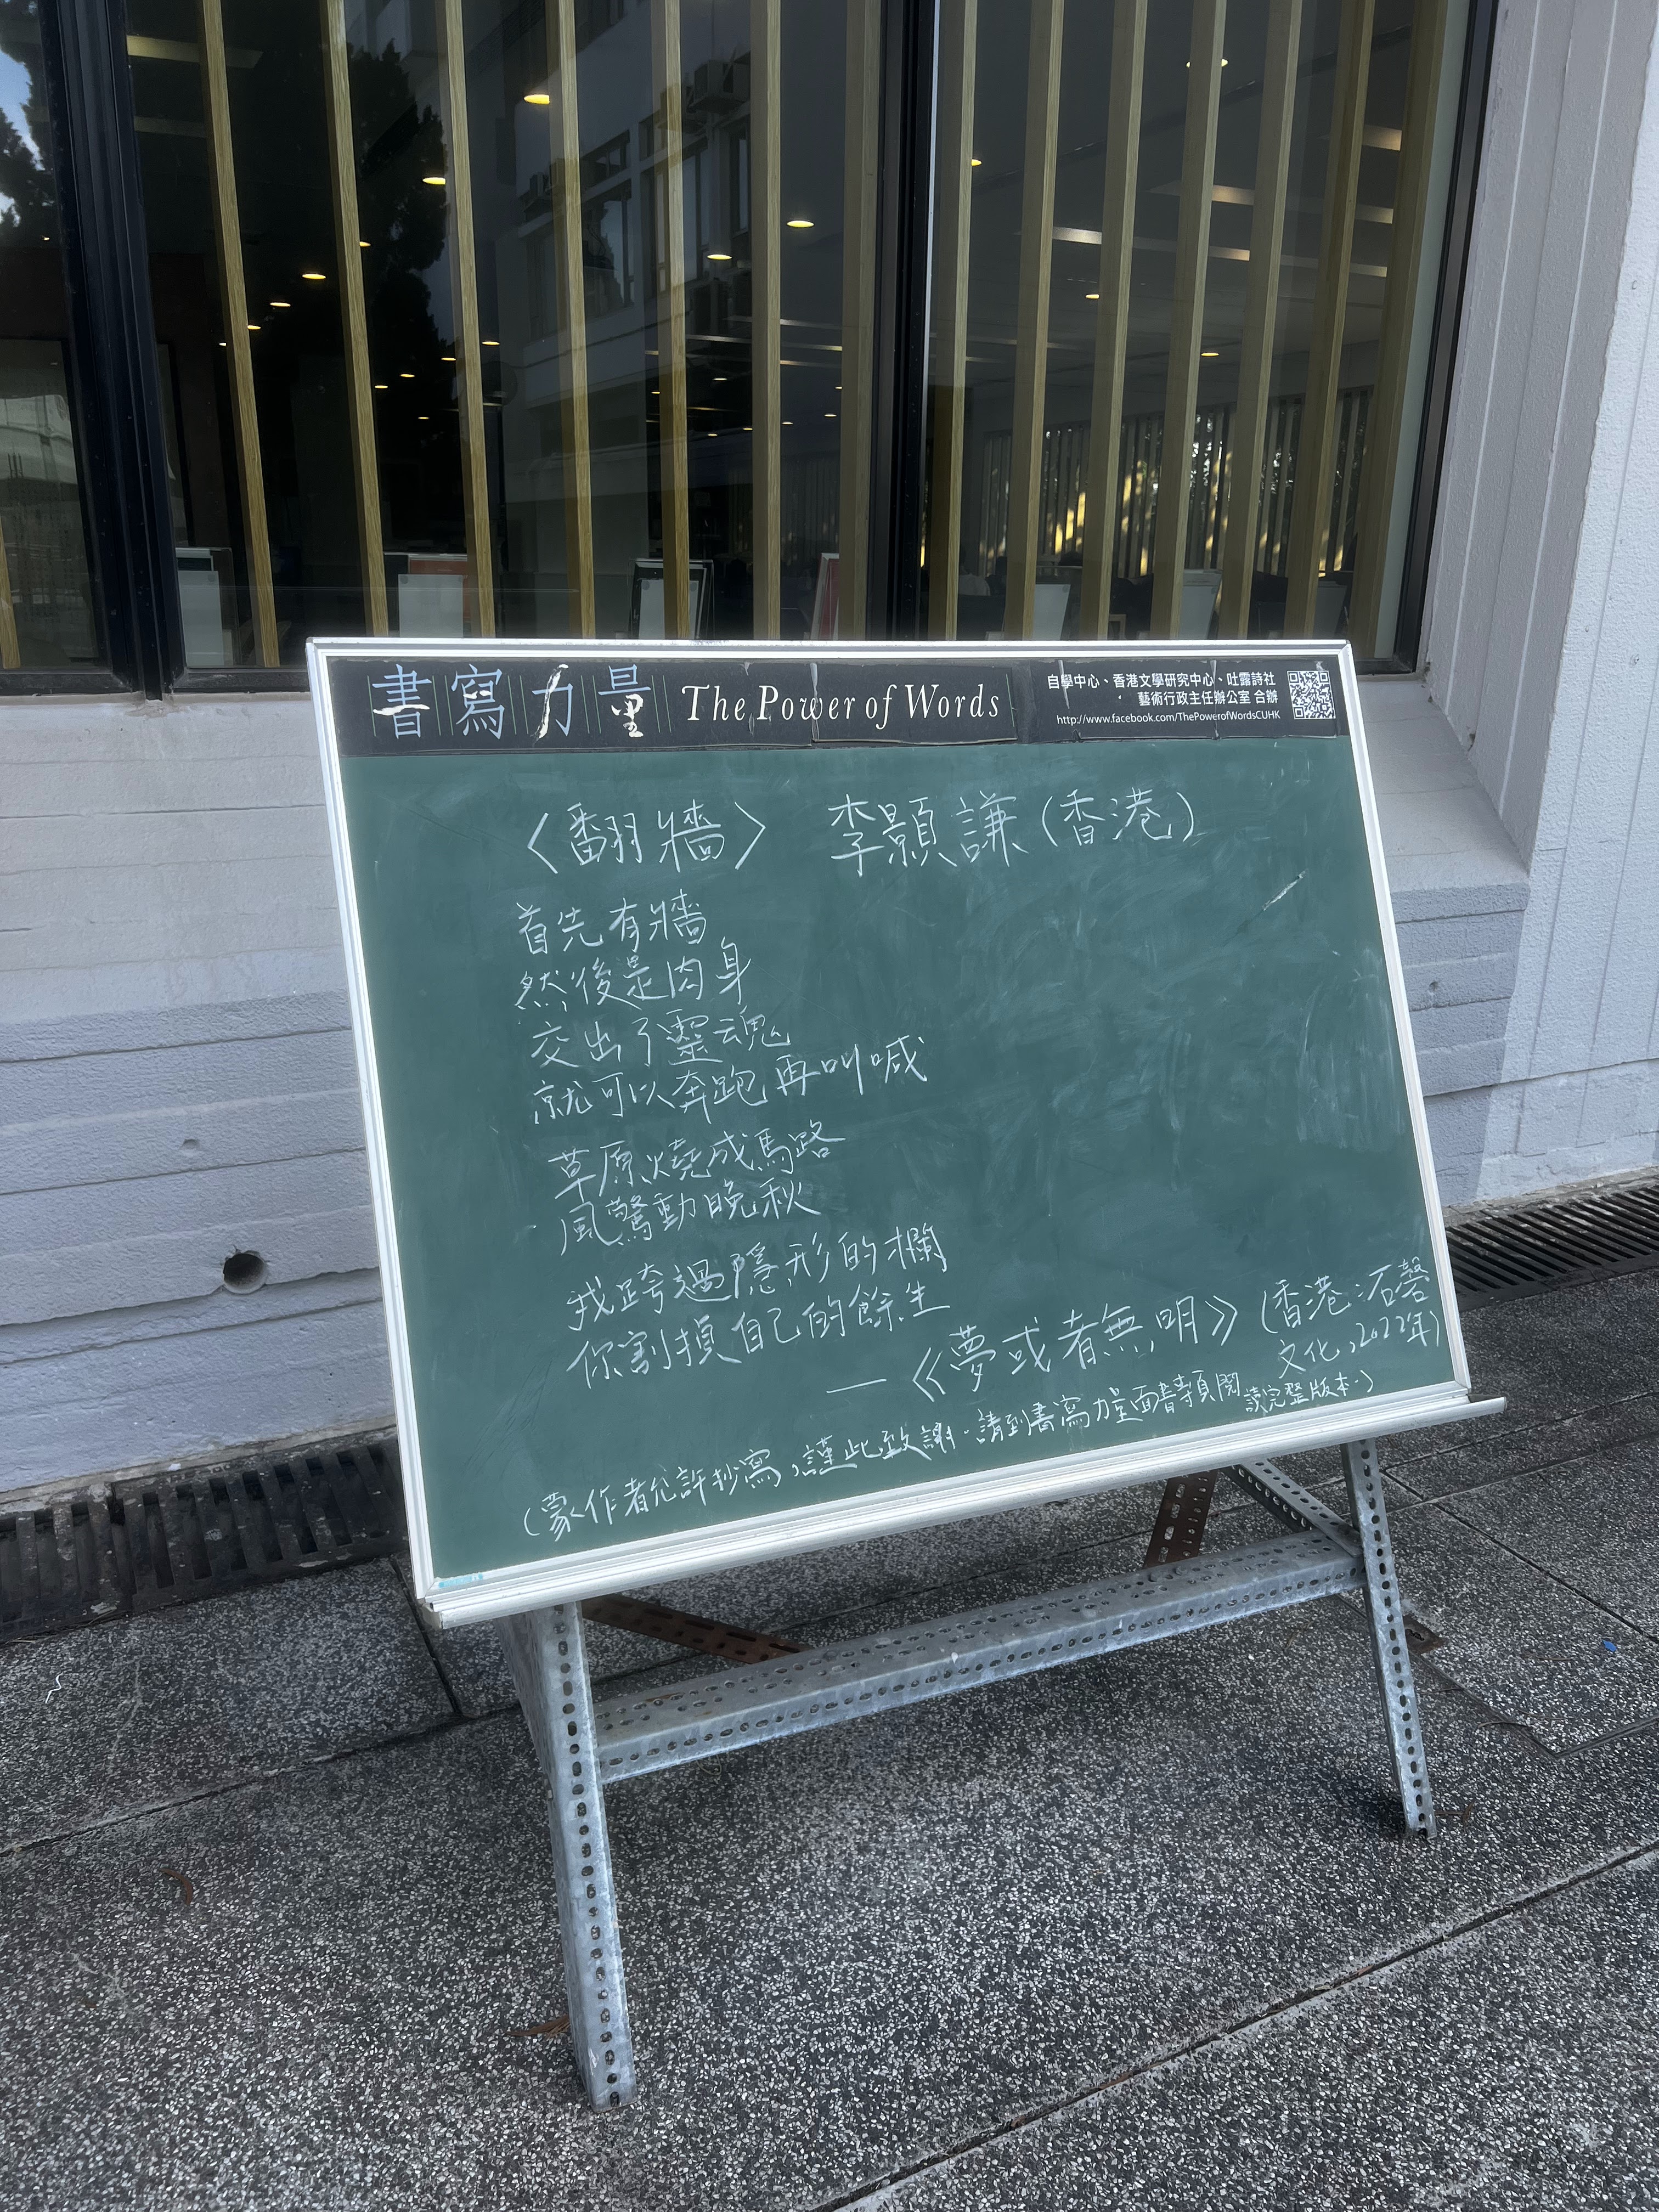 書寫力量 The Power of Words
自學中心、香港文學研究中心、吐露詩社
藝術行政主任辦公室 合辦
http://www.facebook.com/ThePowerofWordsCUHK
〈翻牆〉 李顥謙(香港)
首先有牆
然後是肉身
交出了靈魂
就可以奔跑再叫喊
草原燒成馬路
風驚動晚秋
我跨過隱形的欄
你割損自己的餘生
—《夢或者無明》(香港:石磬
文化,2022年)
(蒙作者允許抄寫,謹此致謝。請到書寫力量面書專頁閱讀完整版本。)